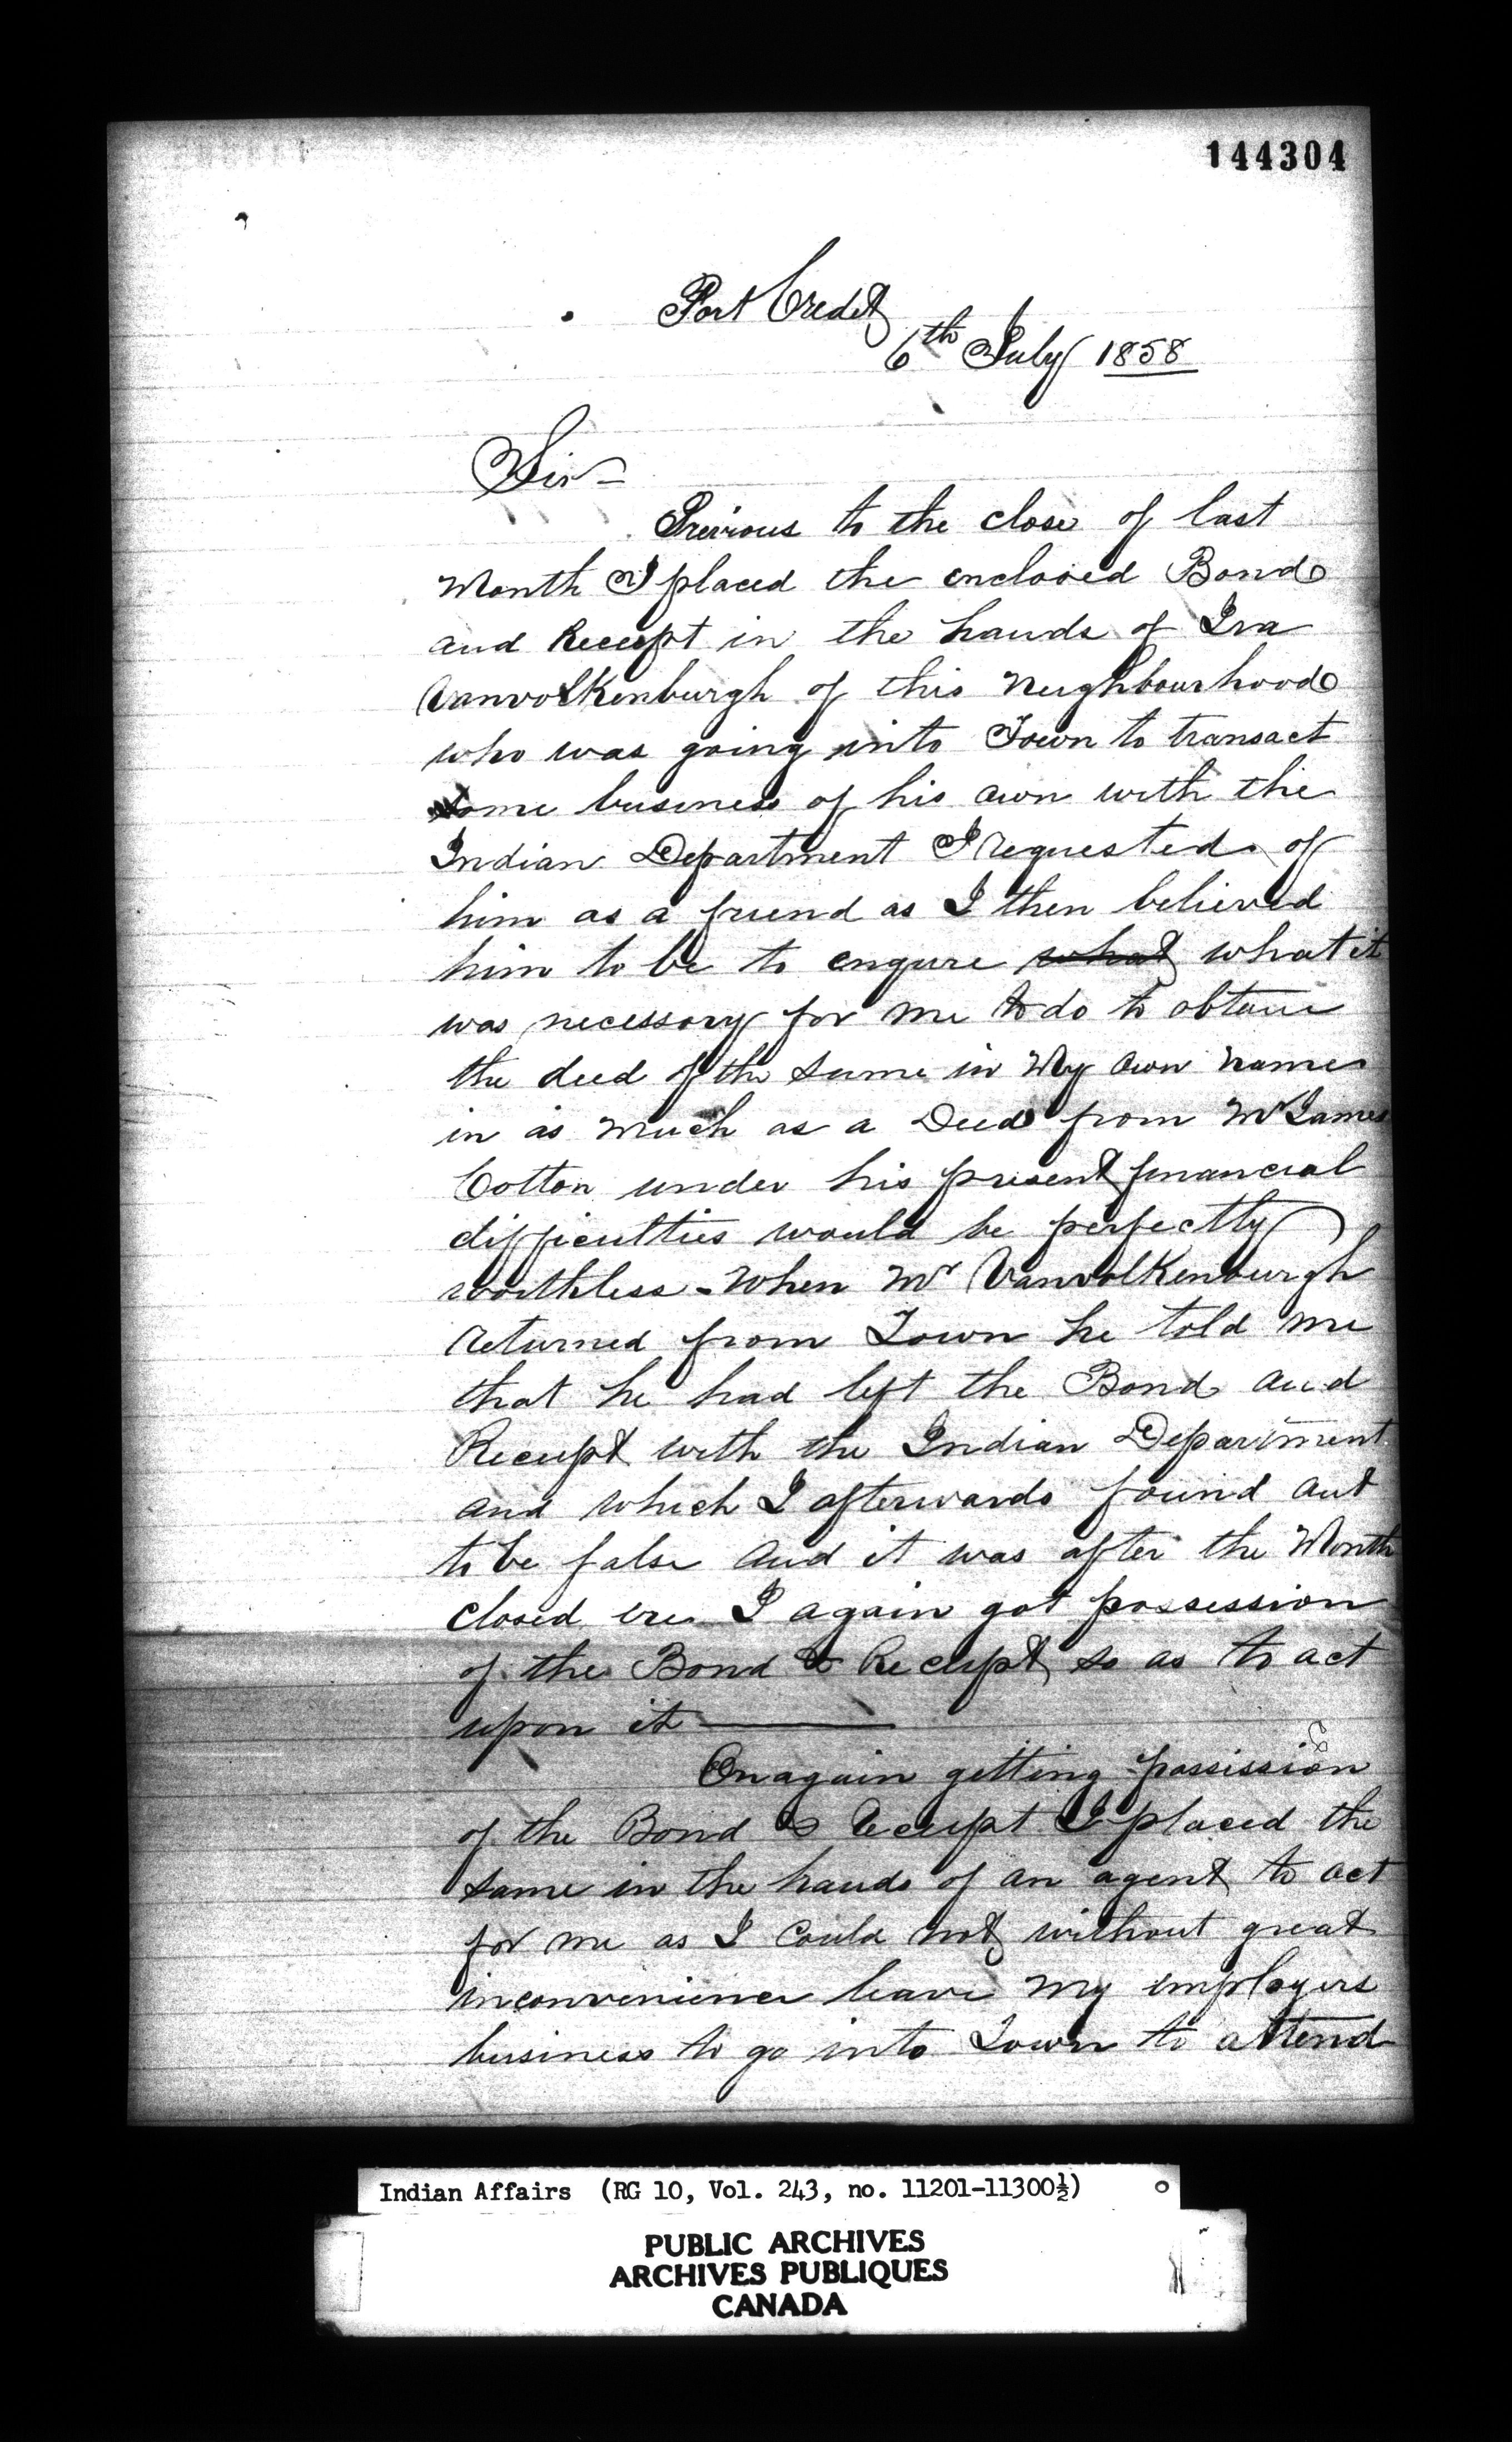 144304
Port Credit
6th July 1858
Sir -
Previous to the close of last
Month I placed the enclosed Bond
and Receipt in the hands of Ira
Vanvolkenburgh of this Neighbourhood
who was going into Town to transact
some business of his own with the
Indian Department I requested of
him as a friend as I then believed
him to be to enqure what what it
was necessary for me to do to obtain
the deed of the same in My own name
in as much as a Deed from Mr James
Cotton under his present financial
difficulties would be perfectly
worthless - When Mr Vanvolkenburgh
returned from Town he told me
that he had left the Bond and
Receipt with the Indian Department
and which I afterwards found out
to be false and it was after the Month
closed ere I again got possession
of the Bond & Receipt so as to act
upon it ———
On again getting possission
of the Bond & Receipt I placed the
same in the hands of an agent to act
for me as I could not without great
inconvenience leave my employers
business to go into Town to attend
Indian Affairs (RG 10, Vol. 243, no. 11201-11300½)
PUBLIC ARCHIVES
ARCHIVES PUBLIQUES
CANADA